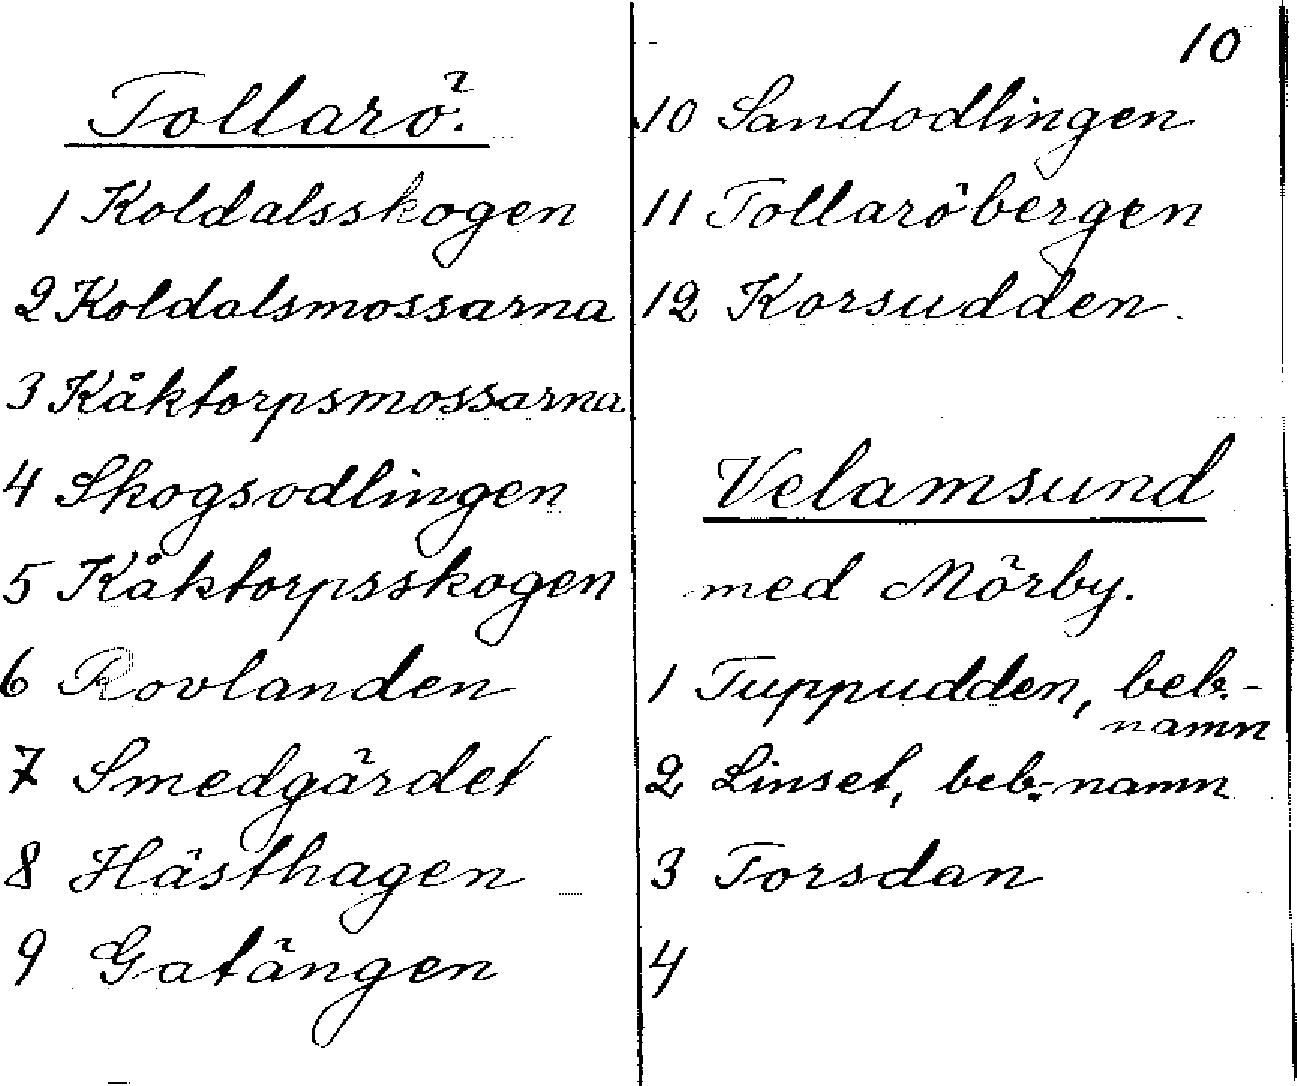 Tollarö.
1 Koldalsskogen
2 Koldalsmossarna
3 Kåktorpsmossarna
4 Skogsodlingen
5 Kåktorpsskogen
6 Rovlanden
7 Smedgärdet
8 Hästhagen
9 Gatängen
10
10 Sandodlingen
11 Tollaröbergen
12 Korsudden.
Velamsund
med Mörby.
1 Tuppudden, beb.-
namn
2 Linset, beb.-namn
3 Torsdan
4